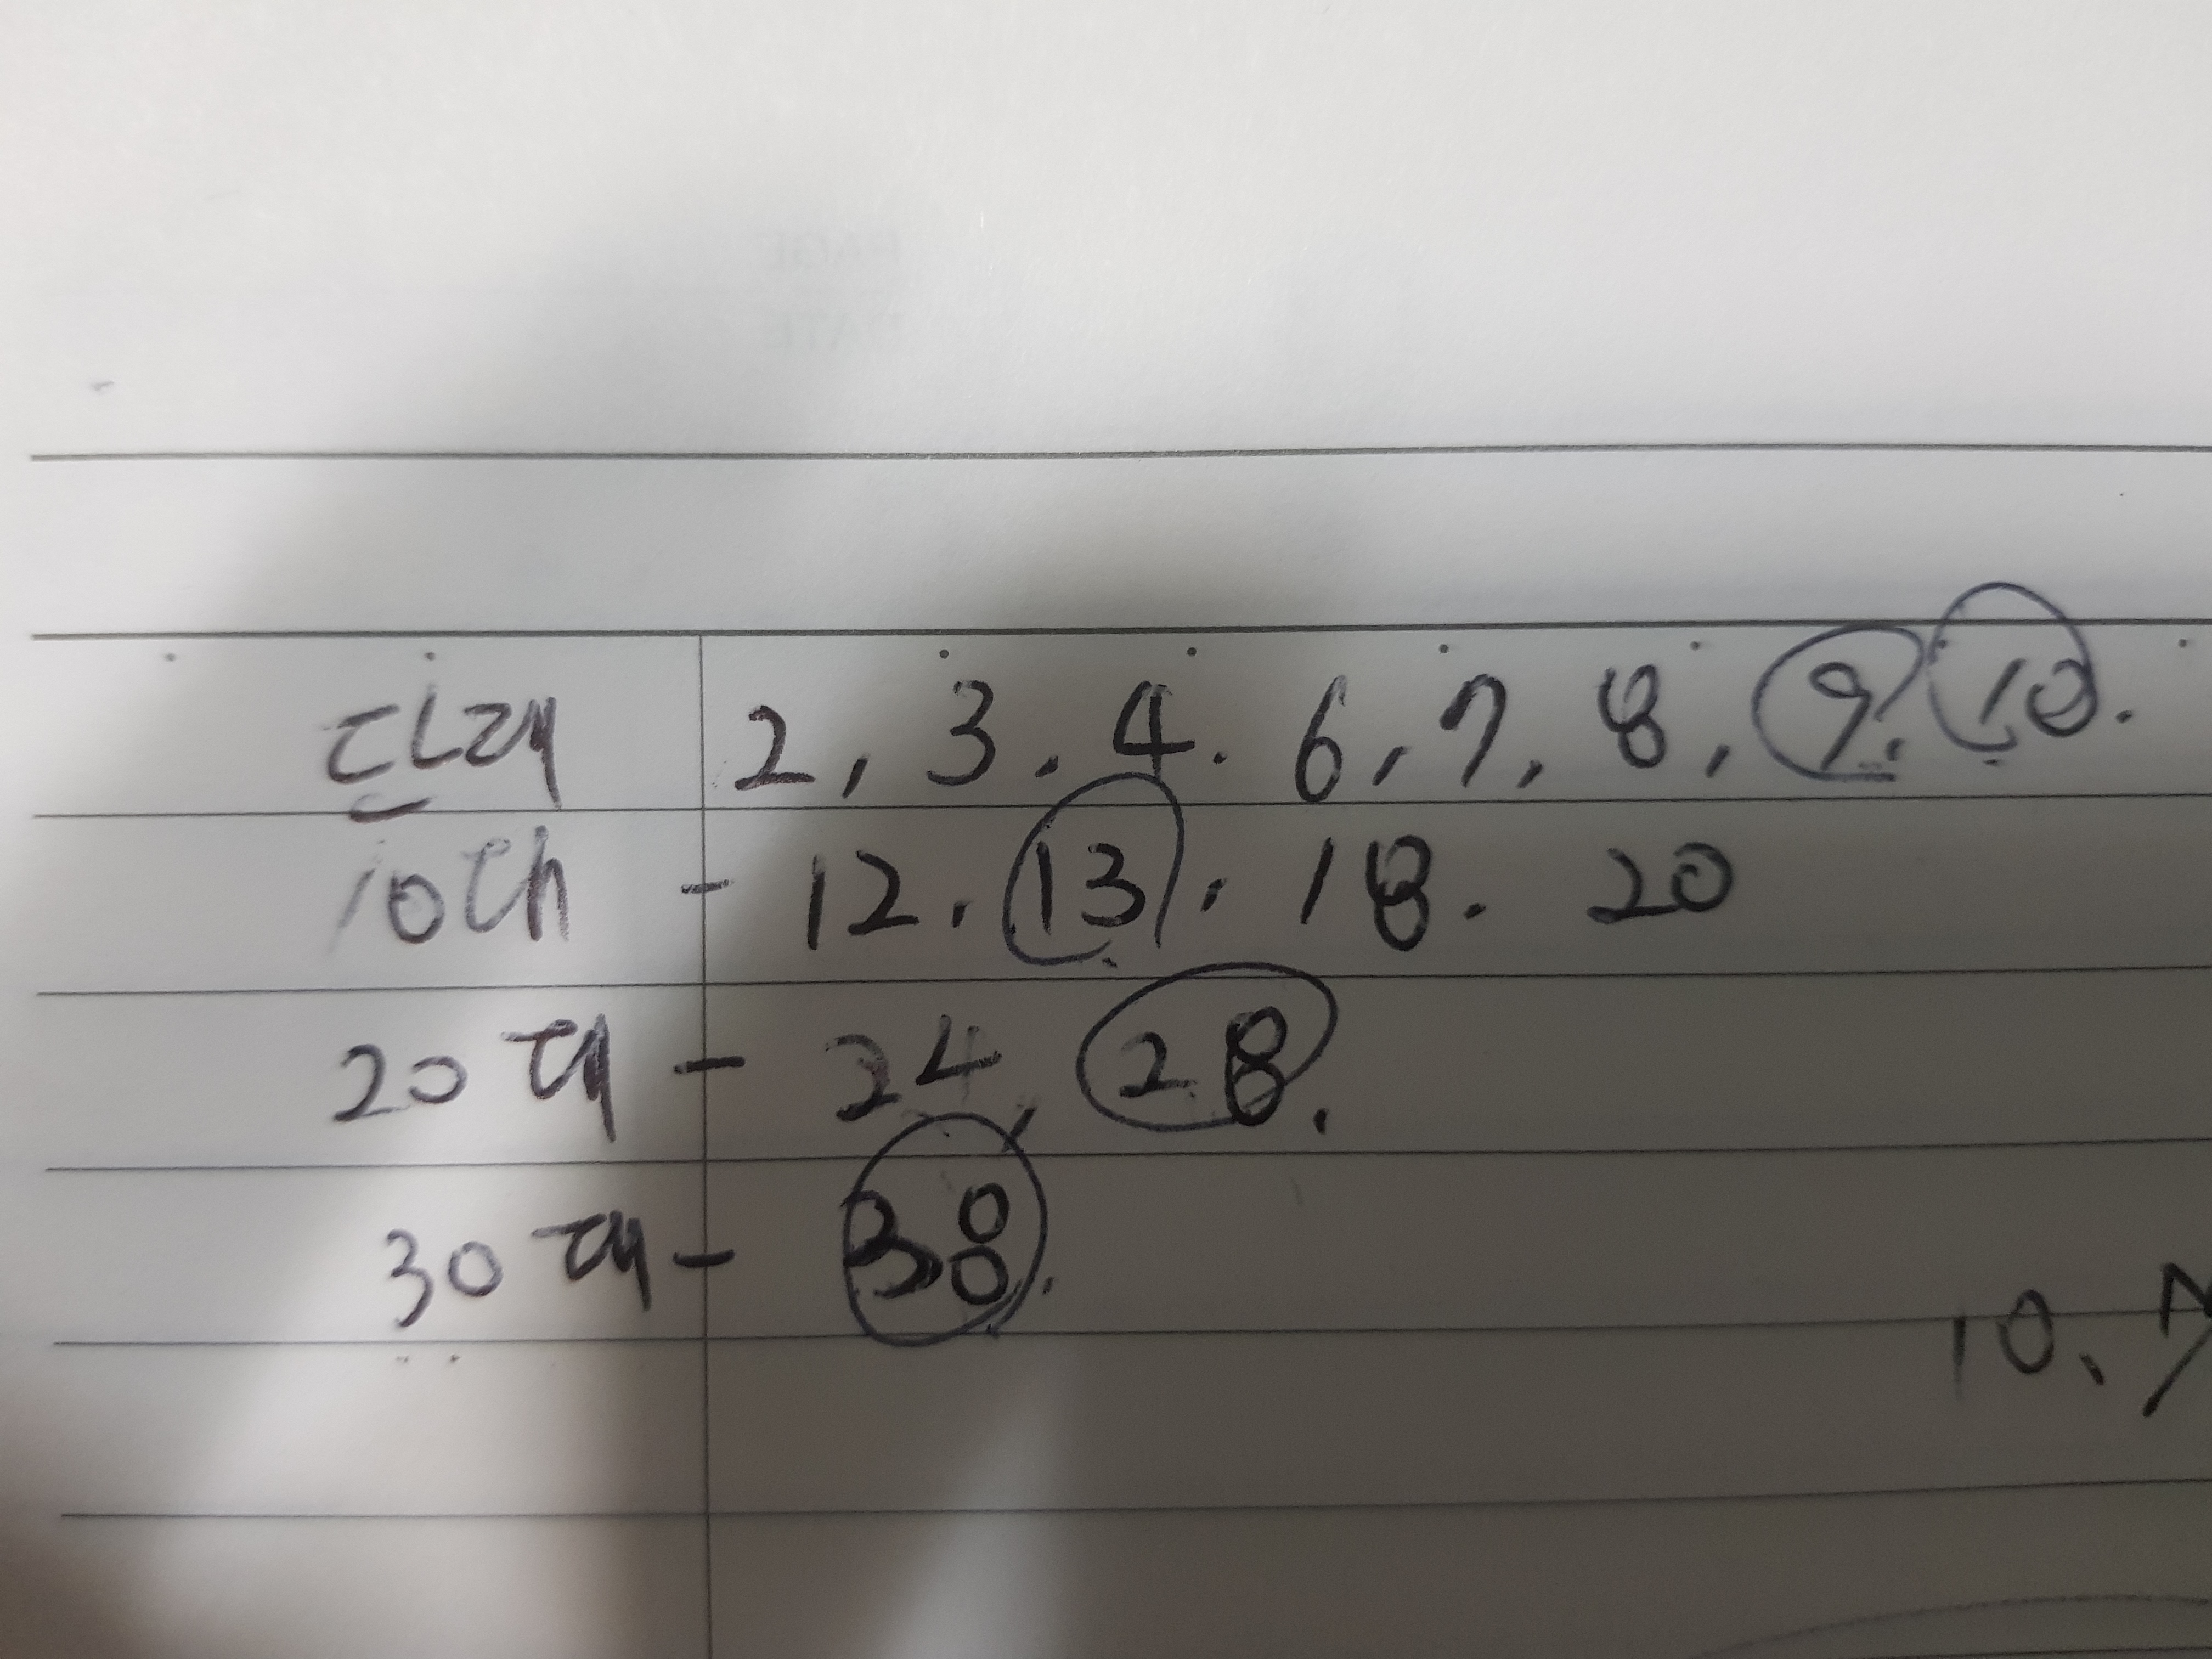 단대 2, 3. 4. 6, 7, 8, 9. 10.
10대 - 12. 13. 18. 20
20대 - 24, 28.
30대 - 38.
10.